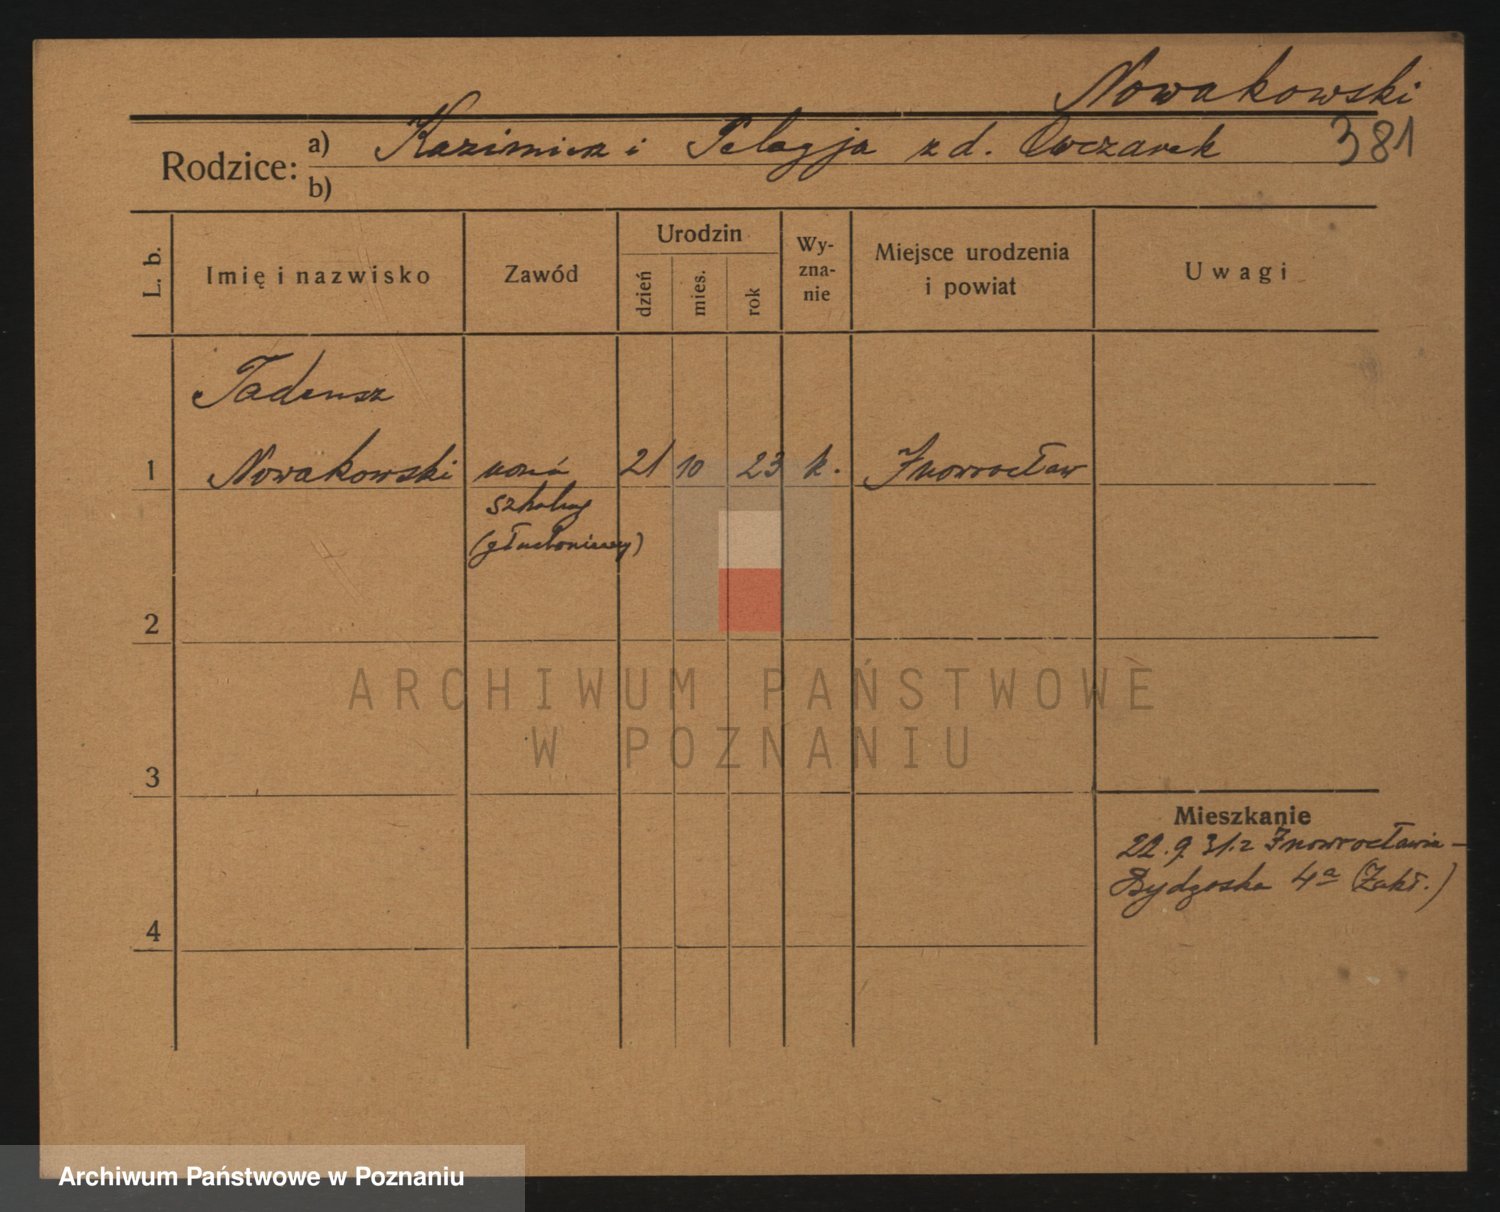 Nowakowski
381
Rodzice:
a) Kazimierz i Pelagja z d. Owczarek
b)
L. b.
Imię i nazwisko
Zawód
Urodzin
dzień
mies.
rok
Wy-
zna-
nie
Miejsce urodzenia
i powiat
Uwagi
Tadeusz
1 Nowakowski 21 10 23 k. Inowrocław
szkolny
(głuchoniemy)
2
3
4
Mieszkanie
22.9.31. z Inowrocławia –
Bydgoska 4a (Zakł.)
ARCHIWUM PAŃSTWOWE
W POZNANIU
Archiwum Państwowe w Poznaniu